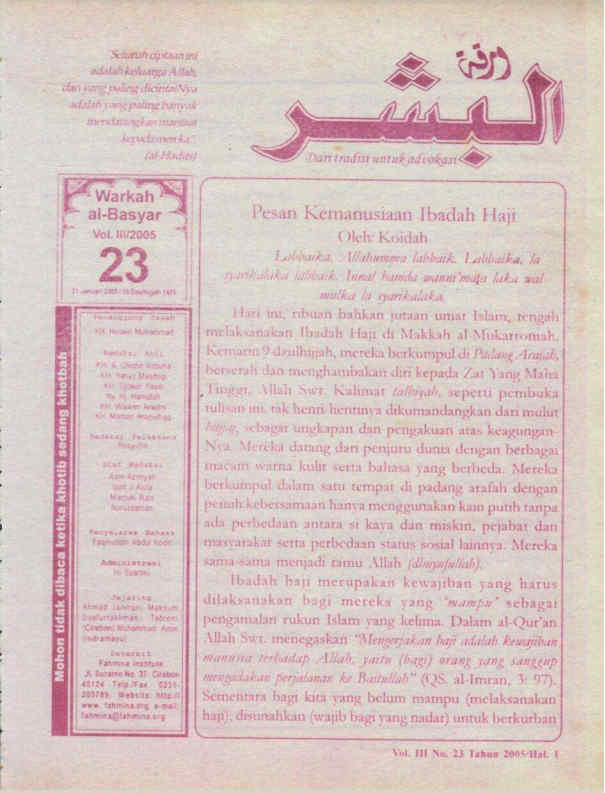 "Seluruh ciptaan ini
adalah keluarga Allah,
dan yang paling dicintai-Nya
adalah yang paling banyak
mendatangkan manfaat
kepada mereka"
(al-Hadits)
ورقة
البشر
Dari tradisi untuk advokasi
Warkah
al-Basyar
Vol. III/2005
23
Penanggung Jawab
KH. Husein Muhammad
Redaksi Ahli
Ny. Hj. Hamidah
KH. Wawan Arwani
Redaksi Pelaksana
Rosyidin
Staf Redaksi
Marzuki Rais
Nurussaman
Penyelaras Bahasa
Faqihuddin Abdul Kodir
Administrasi
Jejaring
Ahmad Jahidin, Maksum,
Syafiurrakhman, Tabroni
(Cirebon) Muhammad Amin
(Indramayu)
Penerbit
Fahmina Institute
Jl. Suratno No. 37 Cirebon
45124 Telp./Fax 0231-
203789, Website: http://
www.fahmina.org e-mail:
fahmina@fahmina.org
Mohon tidak dibaca ketika khotib sedang khotbah
Pesan Kemanusiaan Ibadah Haji
Oleh: Koidah
Labbaika, Allahumma labbaik. Labbaika, la
syarikalaka labbaik. Innal hamda wanni'mata laka wal
mulka la syarikalaka.
Hari ini, ribuan bahkan jutaan umat Islam, tengah
melaksanakan Ibadah Haji di Makkah al Mukarromah.
Kemarin 9 dzulhijjah, mereka berkumpul di Padang Arafah,
berserah dan menghambakan diri kepada Zat Yang Maha
Tinggi, Allah Swt. Kalimat talbiyah, seperti pembuka
tulisan ini, tak henti-hentinya dikumandangkan dari mulut
hujjaj, sebagai ungkapan dan pengakuan atas keagungan-
Nya. Mereka datang dari penjuru dunia dengan berbagai
macam warna kulit serta bahasa yang berbeda. Mereka
berkumpul dalam satu tempat di padang arafah dengan
penuh kebersamaan hanya menggunakan kain putih tanpa
ada perbedaan antara si kaya dan miskin, pejabat dan
masyarakat serta perbedaan status sosial lainnya. Mereka
sama-sama menjadi tamu Allah (dhuyufullah).
Ibadah haji merupakan kewajiban yang harus
dilaksanakan bagi mereka yang "mampu" sebagai
pengamalan rukun Islam yang kelima. Dalam al-Qur'an
Allah Swt. menegaskan "Mengerjakan haji adalah kewajiban
manusia terhadap Allah, yaitu (bagi) orang yang sanggup
mengadakan perjalanan ke Baitullah" (QS. al-Imran, 3: 97).
Sementara bagi kita yang belum mampu (melaksanakan
haji), disunahkan (wajib bagi yang nadar) untuk berkurban
Vol. III No. 23 Tahun 2005/Hal. 1